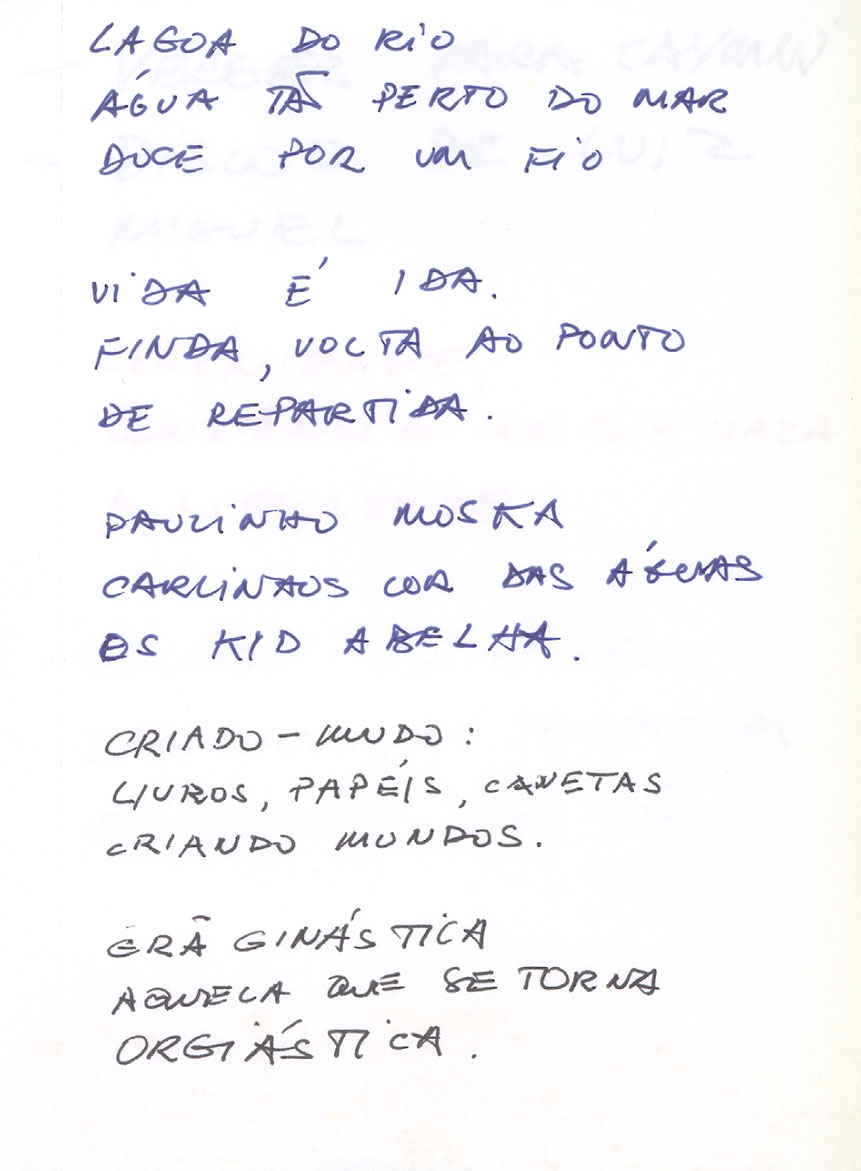 LAGOA DO RIO
ÁGUA TÃ PERTO DO MAR
DOCE POR UM FIO
VIDA É IDA.
FINDA, VOLTA AO PONTO
DE REPARTIDA.
PAULINHO MOSKA
CARLINHOS COR DAS ÁGUAS
OS KID ABELHA.
CRIADO-MUDO:
LIVROS, PAPÉIS, CANETAS
CRIANDO MUNDOS.
GRÃ GINÁSTICA
AQUELA QUE SE TORNA
ORGIÁSTICA.